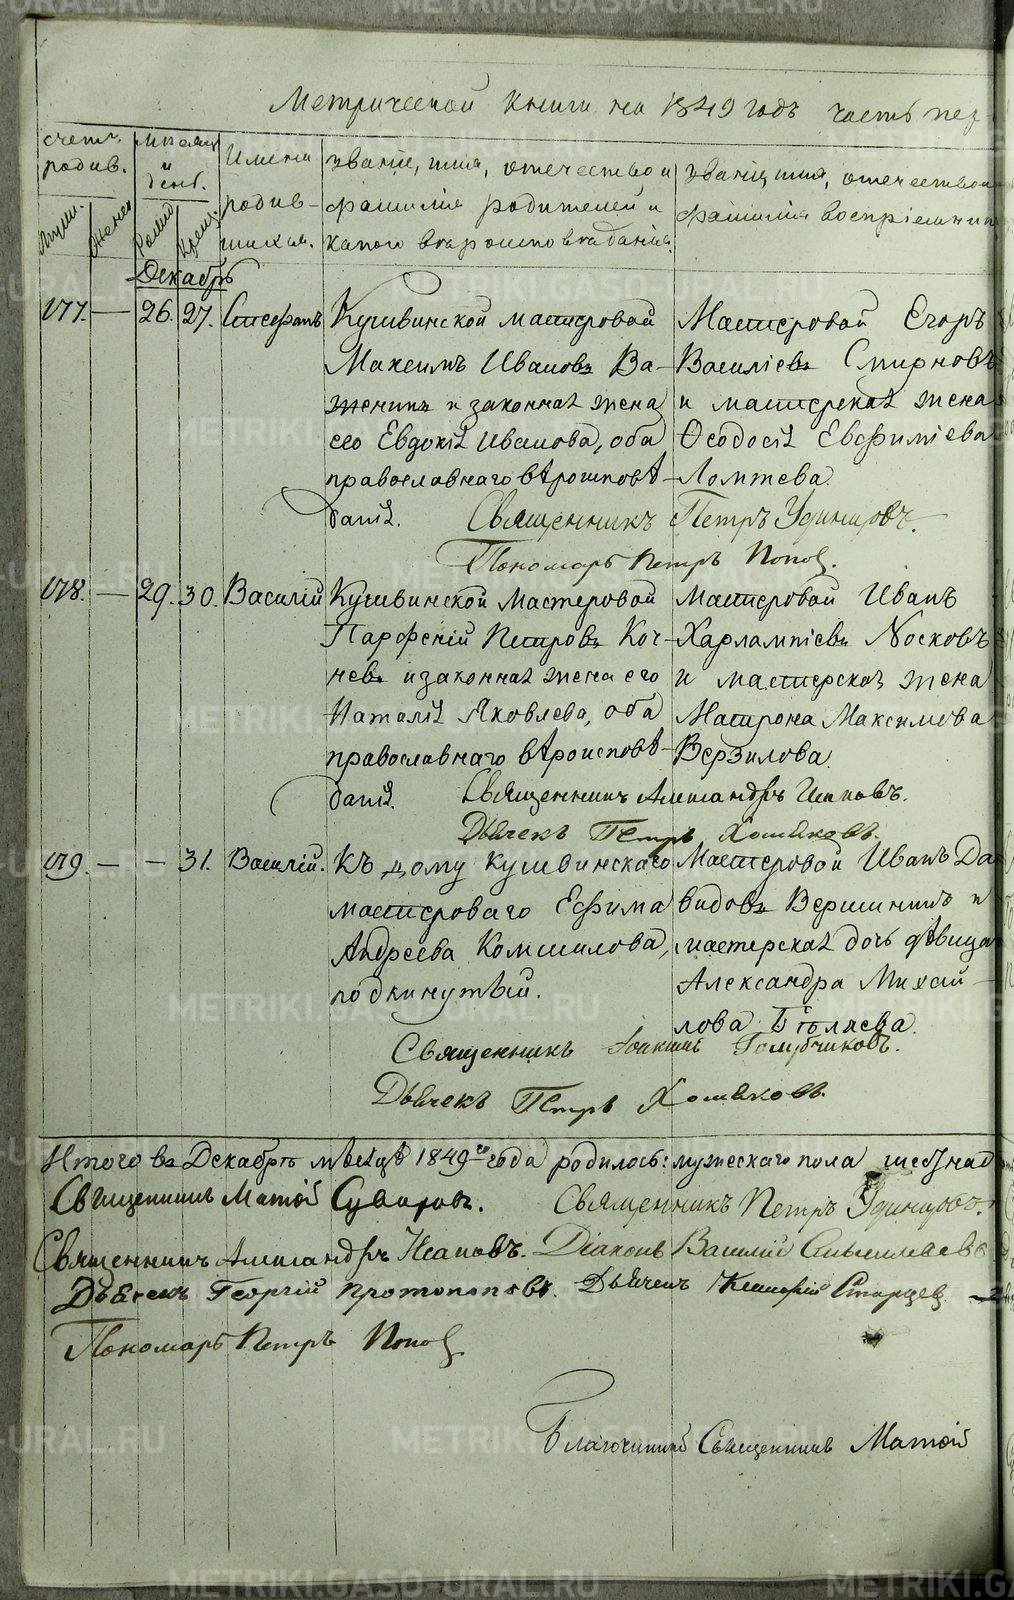 Метрической книги на 1849 годъ часть пер
счетъ родив.
муш. женс.
месяц и день.
рожд. крещ.
Имена родив-
шихся.
Званіе, имя, отечество и
фамилія родителей и
какого вѣроисповѣданія.
Званіе, имя, отечество и
фамилія воспріемник
Декабрь
177. — 26. 27. Стефанъ
Кушвинской мастеровой
Максимъ Ивановъ Ва-
женинъ и законная жена
его Евдокія Иванова, оба
православнаго вѣроисповѣ-
данія.
Мастеровой Егоръ
Василіевъ Смирновъ
и мастерская жена
Ѳеодосія Евфиміева
Ломтева.
Священникъ Петръ Удинцовъ.
Пономарь Петръ Поповъ.
178. — 29. 30. Василій
Кушвинской Мастеровой
Парфеній Петровъ Кос-
невъ и законная жена его
Наталія Яковлева, оба
православнаго вѣроисповѣ-
данія.
Мастеровой Иванъ
Харлампіевъ Носковъ
и мастерская жена
Матрона Максимова
Верзилова.
Священникъ Александръ
Дьячекъ Петръ Хомяковъ.
179. — — 31. Василій.
Къ дому кушвинскаго
мастероваго Ефима
Андреева Комшилова,
подкинутый.
Мастеровой Иванъ Да-
видовъ Вершининъ и
мастерская дочь дѣвица
Александра Михай-
лова Бѣляева.
Священникъ Іоакимъ Голубчиковъ.
Дьячекъ Петръ Хомяковъ.
Итого въ Декабрѣ мѣсяцѣ 1849го года родилось: мужескаго пола шестнад
Священникъ Матѳій Суворовъ. Священникъ Петръ Удинцовъ.
Священникъ Александръ Діаконъ Василій
Дьячекъ Георгій Протопоповъ. Дьячекъ Старцевъ.
Пономарь Петръ Поповъ
Благочинный Священникъ Матѳій
METRIKI.GASO-URAL.RU